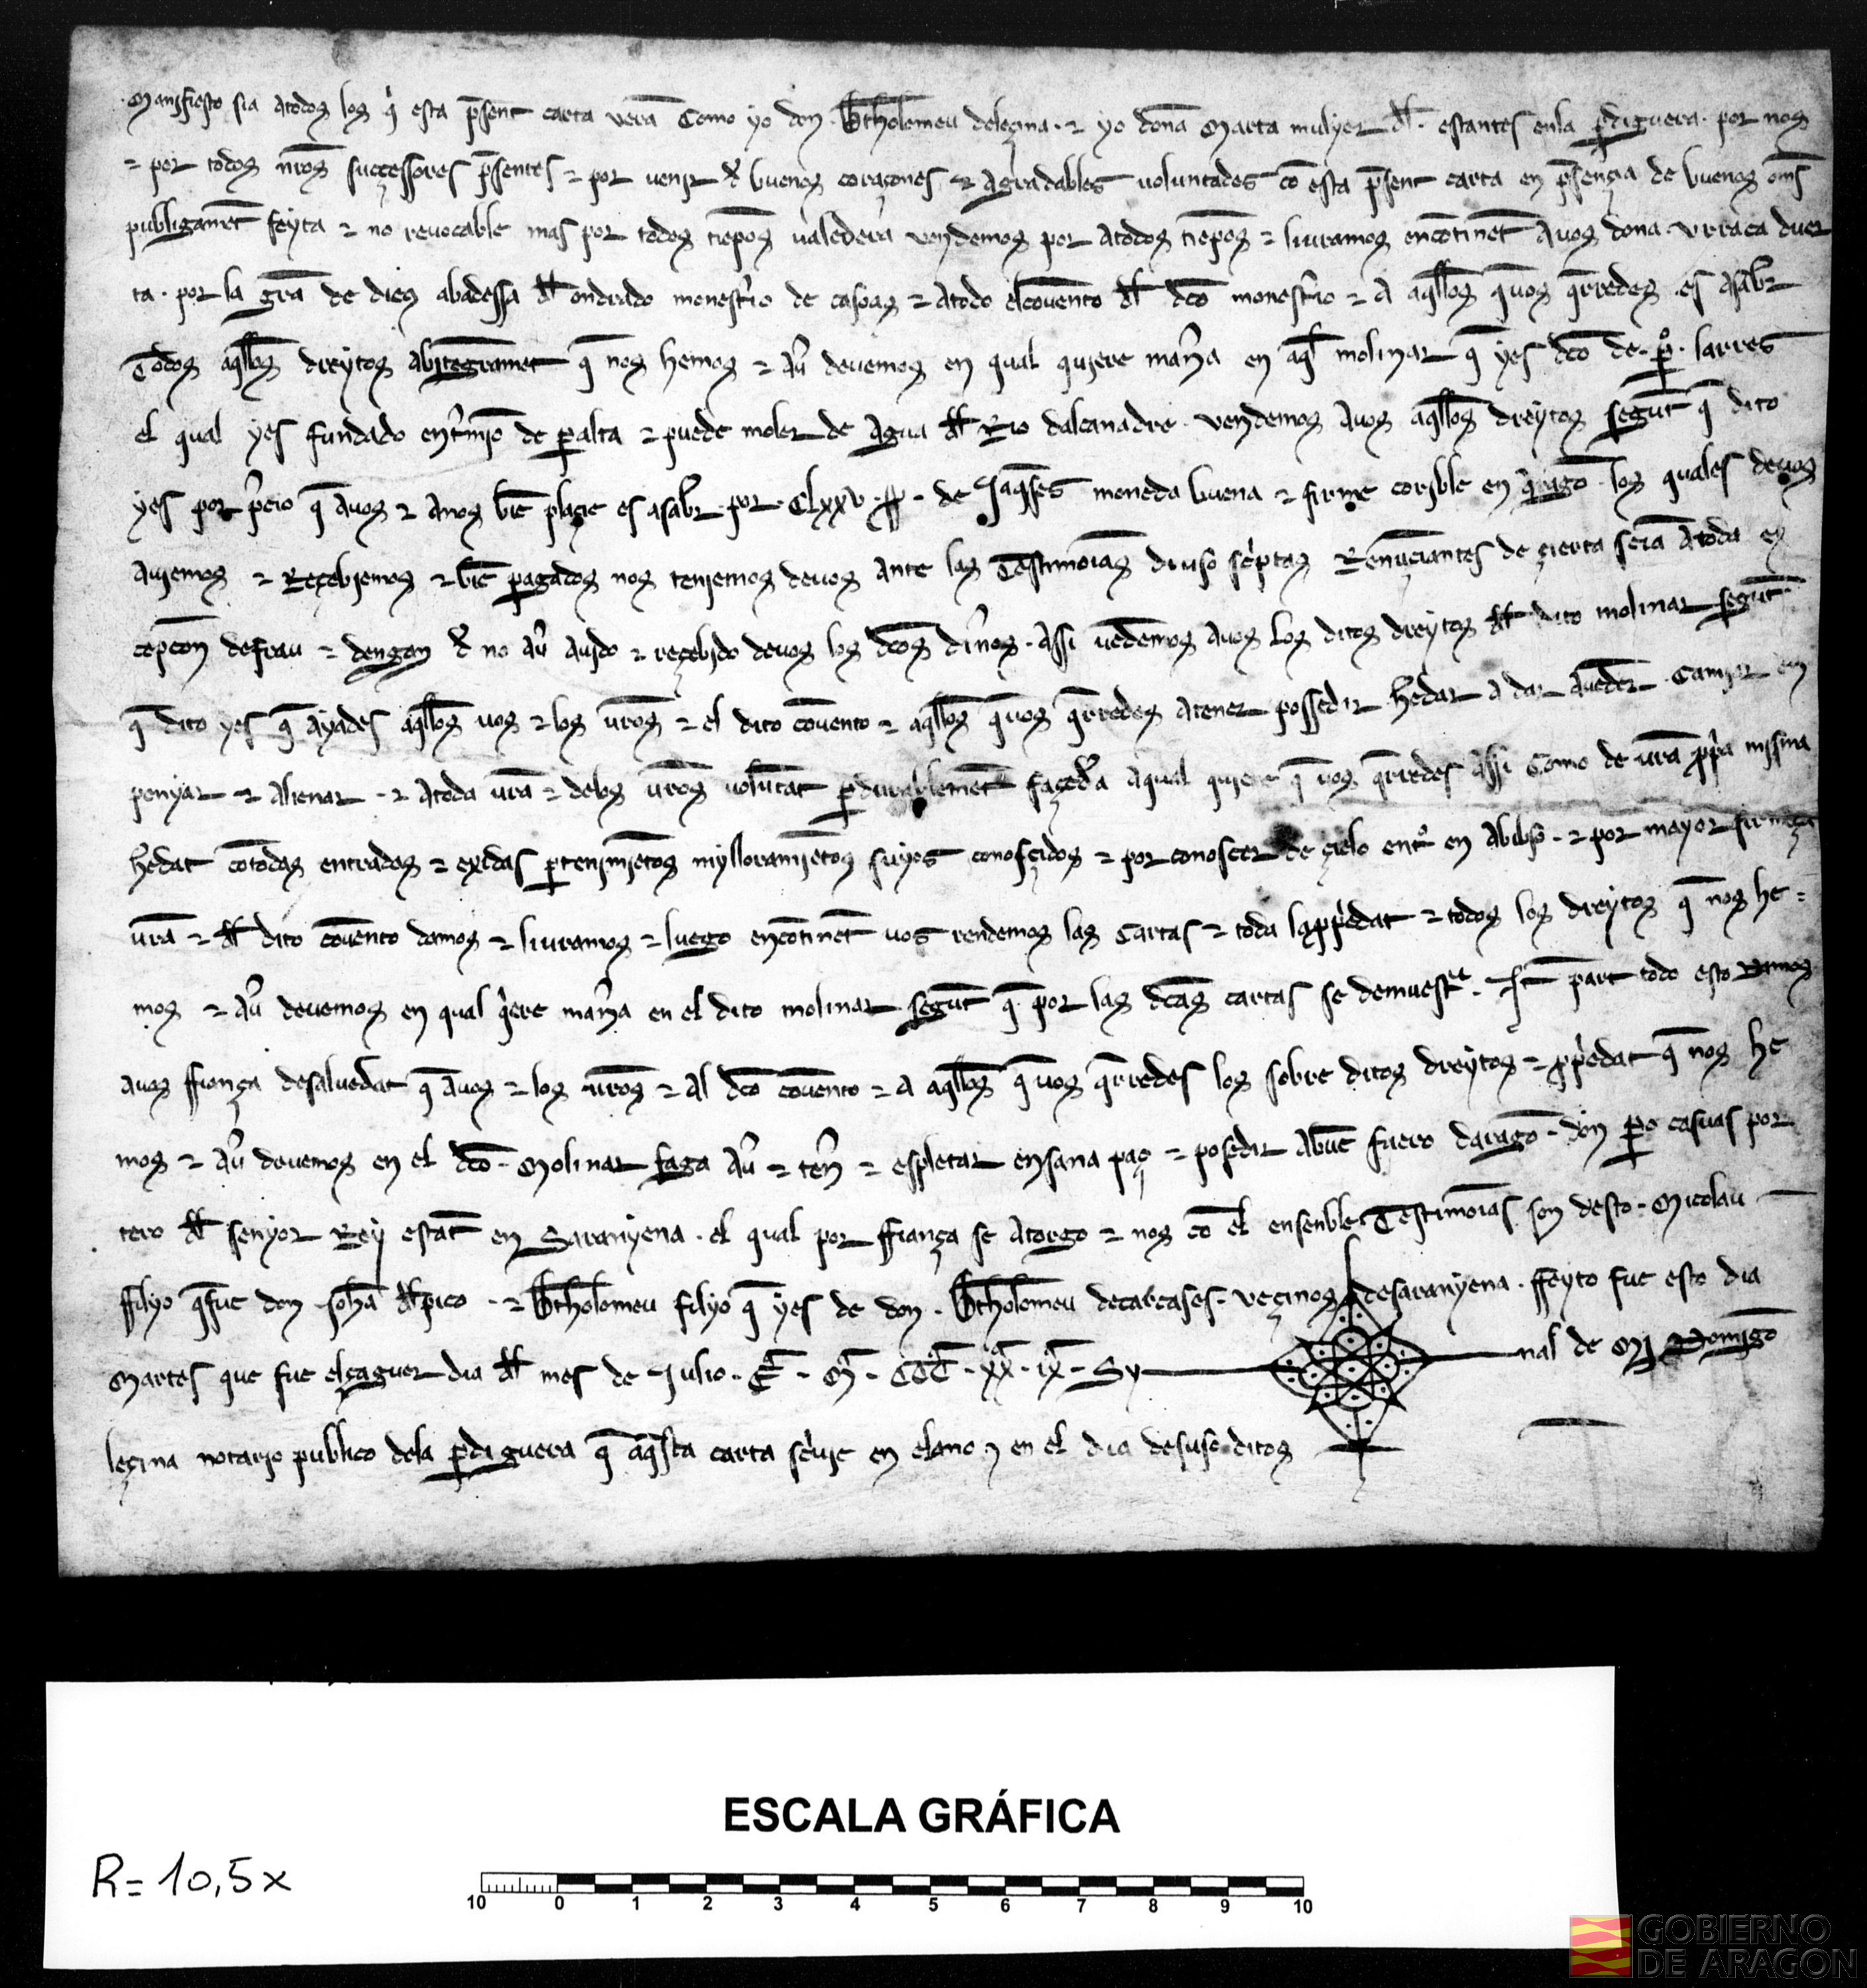 Manifiesto sia atodos los q̄ esta p̄sent carta verā Como yo don Bt̄holomeu deleçina ⁊ yo dona Marta mulyer dl̄ estantes enla p̄diguera por nos
⁊ por todos nr̄os successores p̄sentes ⁊ por uenir d̄ buenos coraçones ⁊ agradables uoluntades cō esta p̄sent carta en p̄sençia de buenos om̄s
publigamēt feyta ⁊ no reuocable mas por todos tiēpos ualedera vendemos por atodos tiēpos ⁊ liuramos encōtinēt Auos dona vrraca duer
ta por la grā de dios abadessa dl̄ ondrado monest̄io de casuas ⁊ atodo elcouēnto dl̄ dc̄o monest̄io ⁊ a aql̄los q̄uos q̄rredes es asab̄r
Todos aql̄los dreytos abītegramēt q̄ nos hemos ⁊ au̾ deuemos en qual quiere man̄a en aql̄ molinar q̄ yes dc̄o de p̊ larres
el qual yes fundado ent̄mīo de p̱alta ⁊ puede moler de agua dl̄ Rio dalcanadre vendemos auos aql̄los dreytos segūt q̄ dito
yes por p̄cio q̄ auos ⁊ anos biē plaçie es asab̄r por CLxxv ss de Jaq̄ses moneda buena ⁊ firme corible en aragō los quales deuos
auiemos ⁊ Reçebiemos ⁊ biē pagados nos teniemos deuos ante las Testimoīas diuso sc̄ptas Renūçiantes de çierta sciā Atoda ex
cepcōn defrau ⁊ dengan d̄ no au̾ auido ⁊ reçebido deuos los dc̄os din̄os Assi uēdemos auos los ditos dreytos dl̄ dito molinar segūt
q̄ dito yes q̄ ayades aql̄los uos ⁊ los ur̄os ⁊ el dito couēnto ⁊ aql̄los q̄uos q̄rredes atener possedir h̄edar a dar auēder Camiar em
penyar ⁊ alienar ⁊ atoda ur̄a ⁊ delos ur̄os uolūtat p̱durablemēt façed̄a aqual quiere q̄ uos q̄rredes assi como de ur̄a pp̄a missma
h̄edat cōtodas entradas ⁊ exidas p̱tenimiētos mylloramiētos suyos conosçidos ⁊ por conoscer de çielo entr̊ en abibso ⁊ por mayor firmeça
ur̄a ⁊ dl̄ dito couēnto damos ⁊ liuramos ⁊ luego encōtinēt uos rendemos las Cartas ⁊ toda lapp̄edat ⁊ todos los dreytos q̄ nos he
mos ⁊ au̾ deuemos en qual q̄ere man̄a en el dito molinar segūt q̄ por las dc̄as cartas se demuestra Et part todo esto damos
auos ffiança desaluedat q̄ auos ⁊ los ur̄os ⁊ al dc̄o couēnto ⁊ a aql̄los q̄uos q̄rredes los sobre ditos dreytos ⁊ pp̄edat q̄ nos he
mos ⁊ au̾ deuemos en el dc̄o Molinar faga au̾ ⁊ ten̄ ⁊ espletar ensana paç ⁊ posedir abuē fuero daragō don p̱o casuas por
tero dl̄ senyor Rey estāt en Saranyena el qual por ffiança se atorgo ⁊ nos cō el ensenble Testimoīas son desto Nicolau
ffilyo q̄fue don Johā dl̄pico ⁊ Bt̄holomeu filyo q̄ yes de don Bt̄holomeu decarcases veçinos desaranyena ffeyto fue esto dia
Martes que fue elçaguer dia dl̄ mes de Julio Eᵃ Mᵃ CCCᵃ xxᵃ ixᵃ Sy nal de Mi Domīgo
leçina notario publico dela p̱diguera q̄ aq̄sta carta sc̄uie en elano ⁊ en el dia desuso ditos
ESCALA GRÁFICA
R= 10,5x
10 0 1 2 3 4 5 6 7 8 9 10
GOBIERNO
DE ARAGON